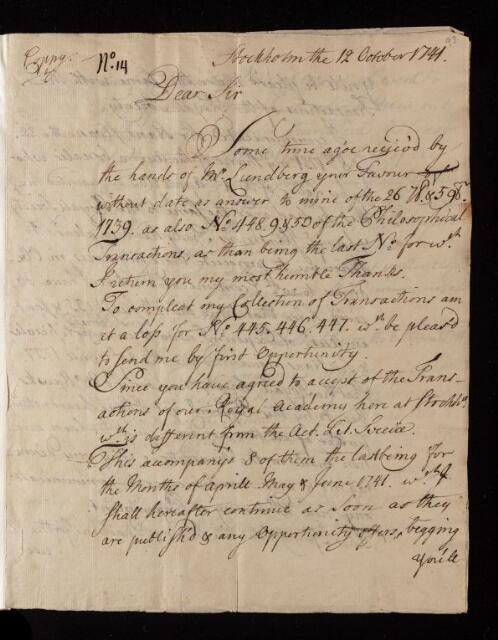 Coppy. No. 14 Stockholm the 12 October 1741.
Dear Sir
Some time agoe receiv'd by
the hands of Mr. Lundberg your Favour
without date as answer to mine of the 26 7br & 5 9br.
1739. as also No. 448. 9 & 50 of the Philosophical
Transactions, as than being the last No. for wch.
I return you my most humble Thanks.
To compleat my Collection of Transactions am
at a loss for No. 445. 446. 447. wch. be pleas'd
to send me by first Opportunity.
Since you have agreed to accept of the Trans-
actions of our Royal Academy here at Stockho.
wch. is different from the Act. Lit. Sveciæ.
This acompanys 8 of them the last being for
the Months of Aprill May & June 1741. wch. I
shall hereafter continue as soon as they
are publish'd & any Opportunity offers, begging
you'll